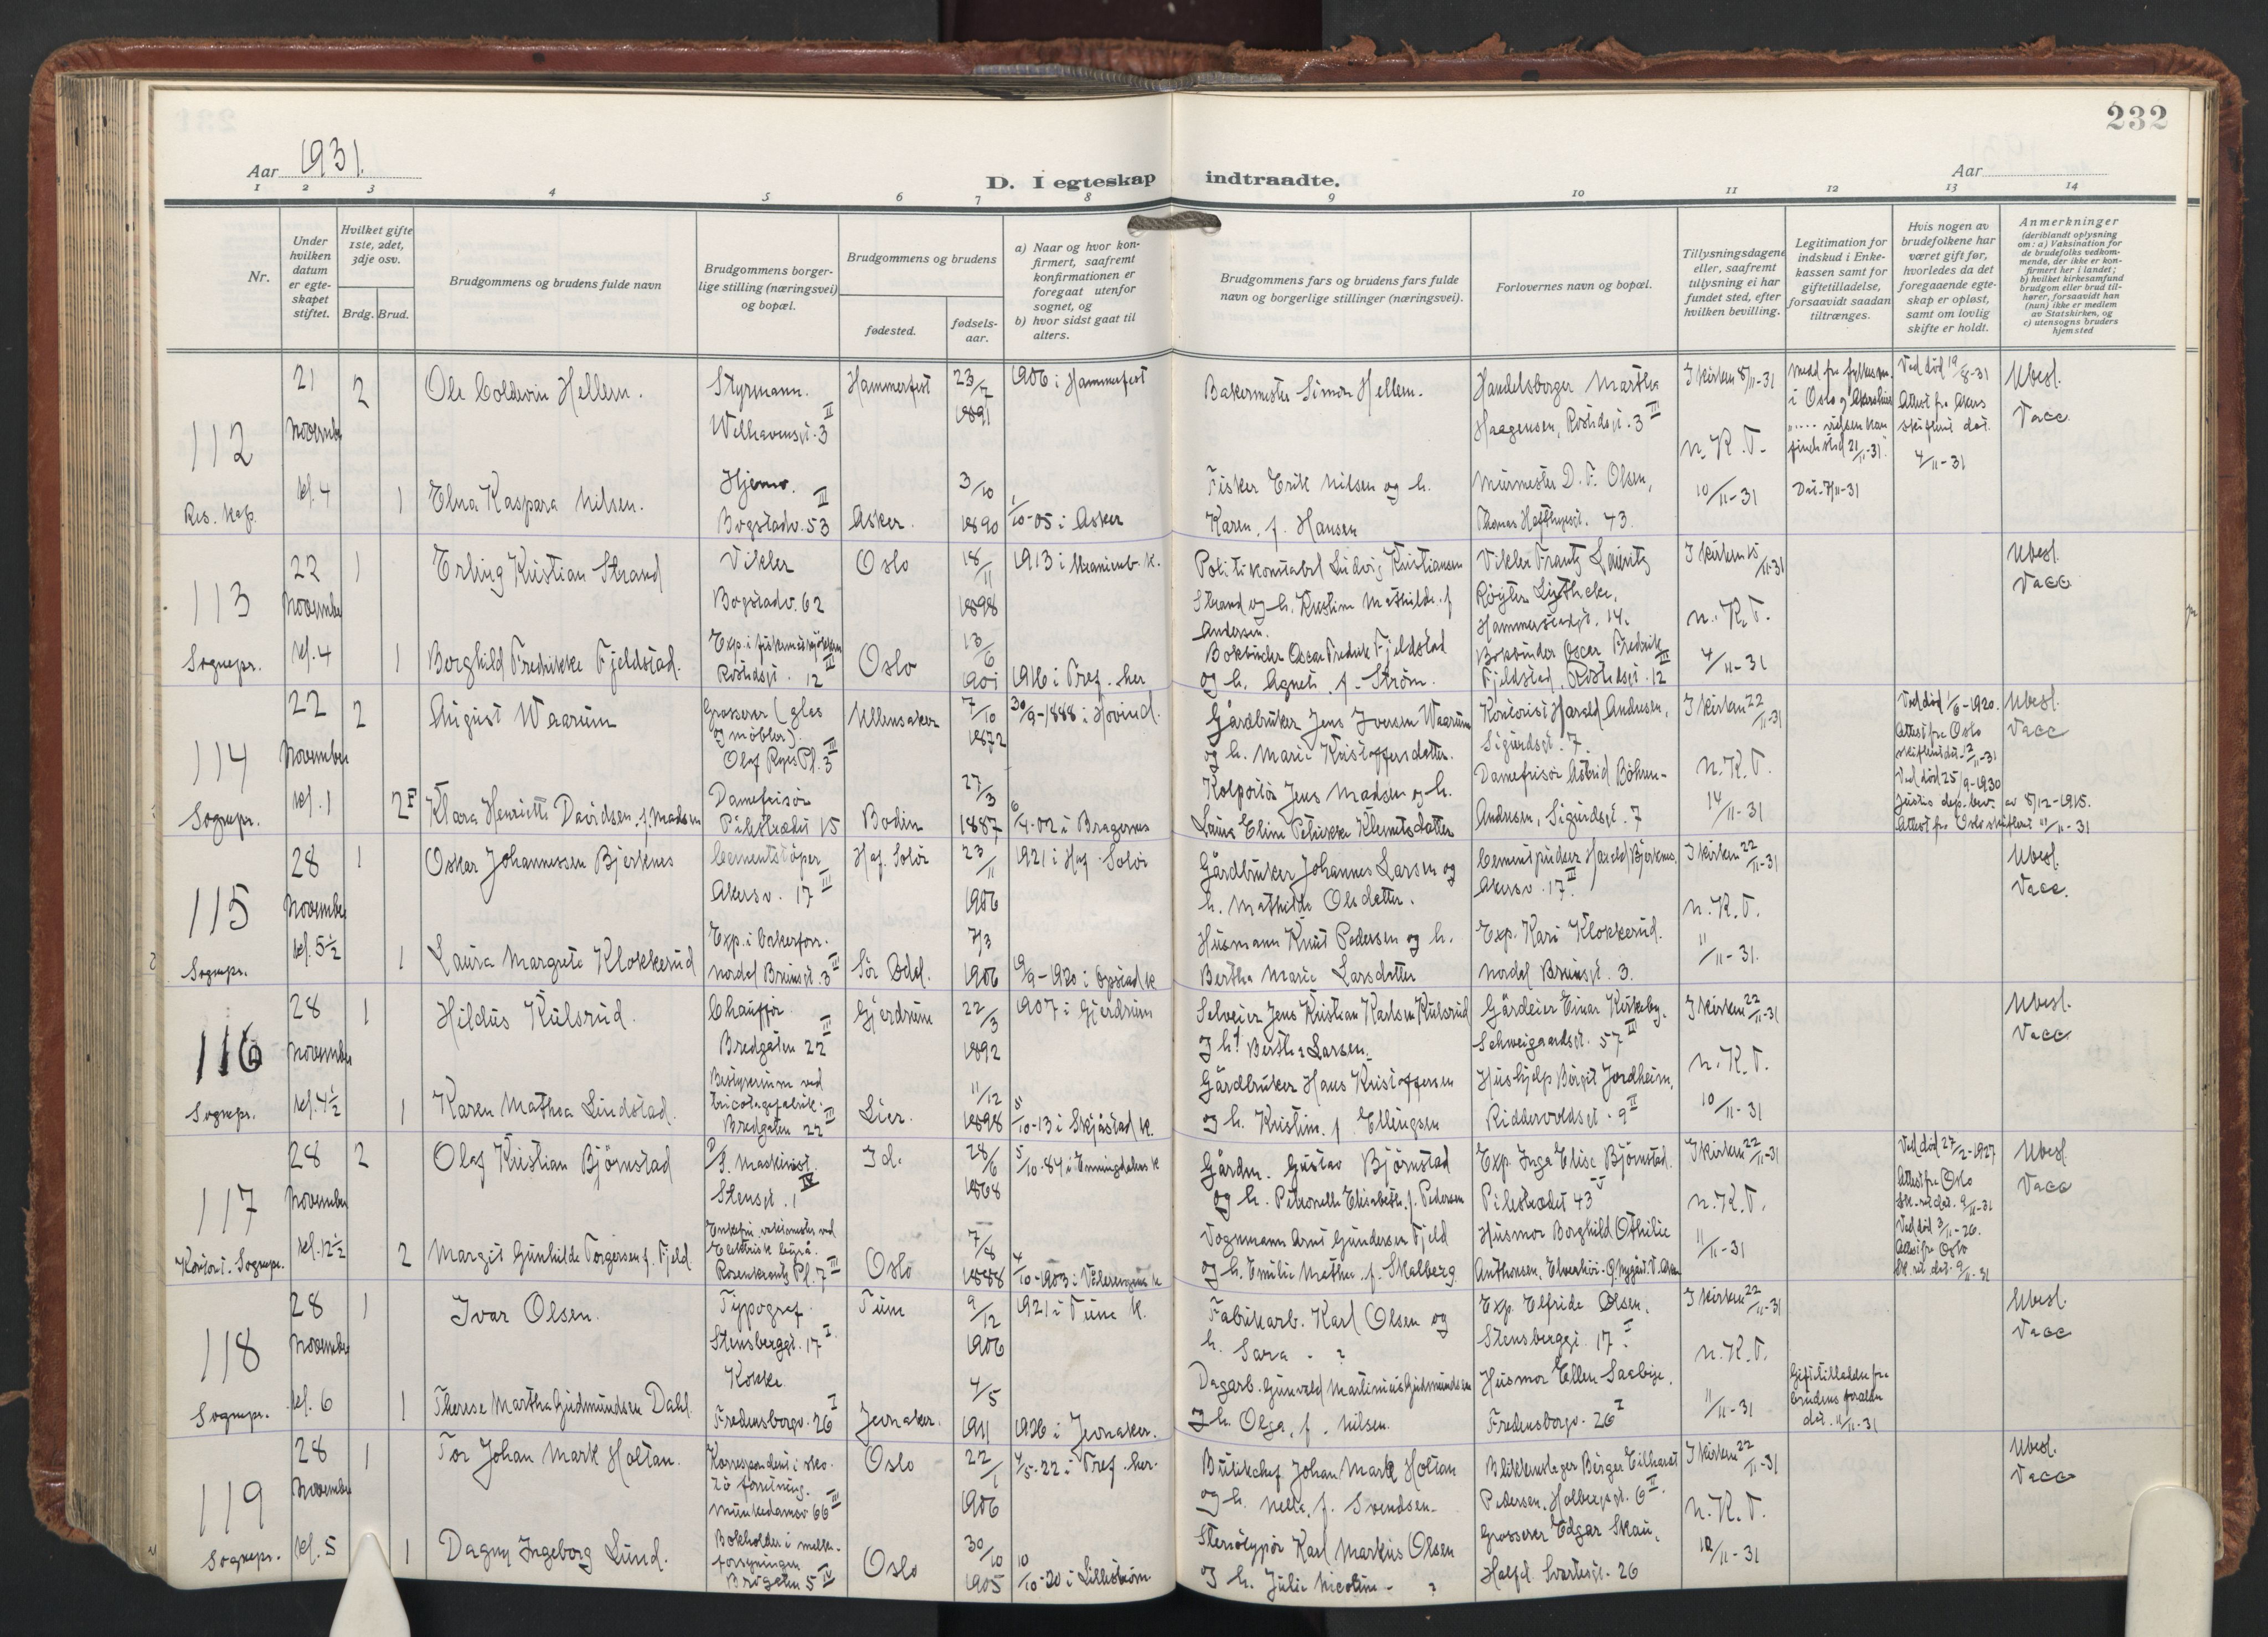 232
Aar 1931.
D. I egteskap indtraadte.
Aar
1 2 3 4 5 6 7 8 9 10 11 12 13 14
Nr.
Under hvilken datum er egteskapet stiftet.
Hvilket gifte 1ste, 2det, 3dje osv.
Brdg. Brud.
Brudgommens og brudens fulde navn
Brudgommens borgerlige stilling (næringsvei) og bopæl.
Brudgommens og brudens
fødested.
fødselsaar.
a) Naar og hvor konfirmert, saafremt konfirmationen er foregaat utenfor sognet, og
b) hvor sidst gaat til alters.
Brudgommens fars og brudens fars fulde navn og borgerlige stillinger (næringsvei).
Forlovernes navn og bopæl.
Tillysningsdagene eller, saafremt tillysning ei har fundet sted, efter hvilken bevilling.
Legitimation for indskud i Enkekassen samt for giftetilladelse, forsaavidt saadan tiltrænges.
Hvis nogen av brudefolkene har været gift før, hvorledes da det foregaaende egteskap er opløst, samt om lovlig skifte er holdt.
Anmerkninger (deriblandt oplysning om: a) Vaksination for de brudefolks vedkommende, der ikke er konfirmert her i landet; b) hvilket kirkesamfund brudgom eller brud tilhører, forsaavidt han (hun) ikke er medlem av Statskirken, og c) utensogns bruders hjemsted
112
Res. kap.
21 November kl. 4
2
Ole Coldevin Hellem.
Styrmann. Welhavensgt. 3 II
Hammerfest
23/7 1891
1906 i Hammerfest
Bakermester Simon Hellem.
Handelsborger Martha Haagensen, Rostedsgt. 3 III
I kirken 8/11-31
n. K. T.
10/11-31
Ved død 19/8-31
Attest fra Akers skifterett dat. 4/11-31
Ubesl.
Vacc.
1
Elna Kaspara Nilsen.
Hjemv. III
Bogstadv. 53
Asker.
3/10 1890
1/10-05 i Asker
Fisker Erik Nilsen og h. Karen, f. Hansen
Murmester D. F. Olsen, Thomas Heftyesgt. 43.
Dat. 7/11-31
113
Sognepr.
22 November kl. 4
1
Erling Kristian Strand
Vikler
Bogstadv. 62
Oslo
18/11 1898
1913 i Uranienb. k.
Politikonstabel Ludvig Kristiansen Strand og h. Kristine Mathilde f. Andersen.
Vikler Frantz Lauritz
Hammerstadgt. 14.
I kirken 15/11-31
n. K. T.
4/11-31
Ubesl.
Vacc
1
Borghild Fredrikke Fjeldstad.
Rostedsgt. 12 III
Oslo
13/6 1901
1916 i Tref. her
Bokbinder Oscar Fredrik Fjeldstad og h. Agnete, f. Strøm.
Bokbinder Oscar Fredrik Fjeldstad, Rostedsgt. 12 III
114
Sognepr.
22 November kl. 1
2
August Waarum
Grosserer (glas og møbler).
Olaf Ryes Pl. 3 III
Ullensaker
7/10 1872
30/9-1888 i Hovind.
Gårdbruker Jens Iversen Waarum og h. Marie Kristoffersdatter.
Kontorist Harald Andresen, Sigurdsgt. 7.
I kirken 22/11-31
n. K. T.
14/11-31
Ved død 1/6-1920.
Attest fra Oslo skifterett dat. 13/11-31
Ubesl.
Vacc
2 F
Klara Henriette Davidsen, f. Madsen
Damefrisør
Pilestrædet 15
Bodin
27/3 1887
6/4-02 i Bragernes
Kolportør Jens Madsen og h. Laura Eline Petrikke Klemetsdatter
Damefrisør Astrid Böhren-Andresen, Sigurdsgt. 7
Ved død 25/9-1930
Justis dep. bev. av 8/12-1915.
Attest fra Oslo skifterett 11/11-31
115
Sognepr.
28 November kl. 5½
1
Oskar Johannessen Bjerknes
Cementstøper
Akersv. 17 III
Hof, Solør
23/11 1906
1921 i Hof, Solør
Gårdbruker Johannes Larsen og h. Mathilde Olsdatter.
Cementpudser Harald Bjerknes, Akersv. 17 II.
I kirken 22/11-31
n. K. T.
11/11-31.
Ubesl.
Vacc.
1
Laura Margrete Klokkerud
Exp. i bakerforr.
Nordal Brunsgt. 3 III
Sør Odal.
7/3 1906
19/9-1920 i Opstad k
Husmann Knut Pedersen og h. Bertha Marie Larsdatter
Exp. Kari Klokkerud. Nordal Brunsgt. 3.
116
Sognepr.
28 November kl. 4½
1
Hildus Kulsrud.
Chauffør.
Bredgaten 22 III
Gjerdrum
22/3 1892
1907 i Gjerdrum
Selveier Jens Kristian Karlsen Kulsrud og h. Bertha Larsen.
Gårdeier Einar Kirkeby. Schweigaardsgt. 57 III
I kirken 22/11-31
n. K. T.
10/11-31
Ubesl.
Vacc
1
Karen Mathea Lindstad.
Bestyrerinne ved tricotagefabrik.
Bredgaten 22 III
Lier.
11/12 1898
5/10-13 i Skjåstad k.
Gårdbruker Hans Kristoffersen og h. Kristine, f. Ellingsen
Hushjelp Birgit Jordheim, Riddervoldsgt. 9 II
117
Kontort. Sognepr.
28 November kl. 12½
2
Olaf Kristian Björnstad
F. Maskinist.
Stensgt. 1 IV
Id.
28/6 1868
5/10-84 i Enningdalens k
Gårdm. Gustav Björnstad og h. Petronelle Elisabeth, f. Pedersen
Exp. Inga Elise Björnstad. Pilestrædet 43 V
I kirken 22/11-31
n. K. T.
11/11-31
Ved død 27/2-1927
Attest fra Oslo sk.rett dat. 9/11-31
Ubesl
Vacc
2
Margit Gunhilde Torgersen f. Fjeld.
Rosenkrantz Pl. 7 III
Oslo
7/8 1888
4/10-1903 i Vålerengens k
Vognmann Arnt Gundersen Fjeld og h. Emilie Mathea, f. Skalberg
Husmor Borghild Othilie Anthonsen,
Ved død 3/11-26.
Attest fra Oslo sk.rett dat. 9/11-31
118
Sognepr.
28 November kl. 6
1
Ivar Olsen.
Typograf.
Stensberggt. 17 I.
Tune
9/12 1906
1921 i Tune k.
Fabrikarb. Karl Olsen og h. Sara - ?
Exp. Elfride Olsen, Stensberggt. 17 I
I kirken 22/11-31
n. K. T.
11/11-31
Ubesl.
Vacc
1
Therese Martha Gudmundsen Dahl.
Kokke.
Fredensborgv. 26 I
Jevnaker.
4/5 1911
1926 i Jevnaker.
Dagarb. Gunvald Martinius Gudmundsen og h. Olga, f. Nilsen.
Husmor Ellen Saebye, Fredensborgv. 26 I
Giftetilladelse fra brudens foreldre dat. 11/11-31
119
Sognepr.
28 November kl. 5
1
Tor Johan Mark Holtan.
Korrespondent i skotøiforretning.
Munkedamsv 66 III
Oslo
22/1 1906
4/5-22 i Tref. her.
Butikchef Johan Mark Holtan og h. Nelle, f. Svendsen-
Blikkenslager Birger Eilhardt Pedersen, Holbergsgt. 6 II.
I kirken 22/11-31
n. K. T.
12/11-31
Ubesl.
Vacc
1
Dagny Ingeborg Lund.
Bokholder i melkeforsyningen
Brugaten 5 IV
Oslo
30/10 1905
10/10-20 i Lilleström
Stereotypør Karl Markus Olsen og h. Julie Nicoline - ?
Grosserer Edgar Skau, Halfd. Svartesgt. 26